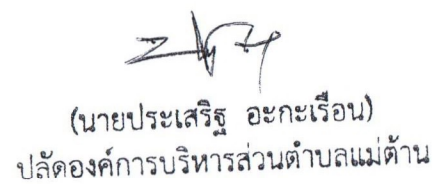 (นายประเสริฐ อะกะเรือน)
ปลัดองค์การบริหารส่วนตำบลแม่ต้าน